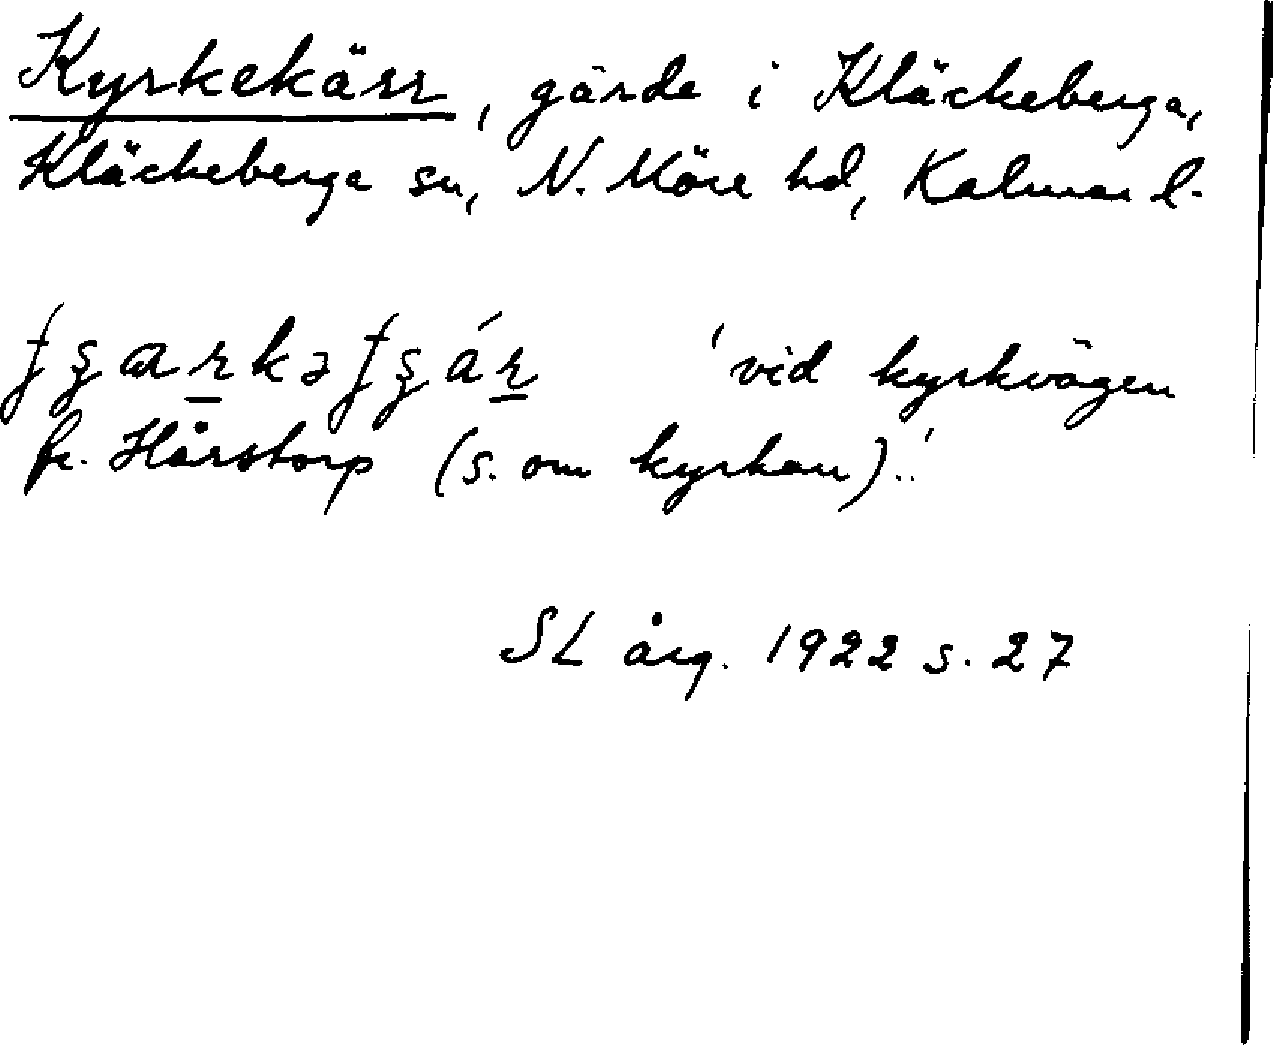 Kyrkekärr, gärde i Kläckeberga,
Kläckeberga sn, N. Möre hd, Kalmar l.
'vid kyrkvägen
fr. Hårstorp (s. om kyrkan)..'
SL årg. 1922 s. 27